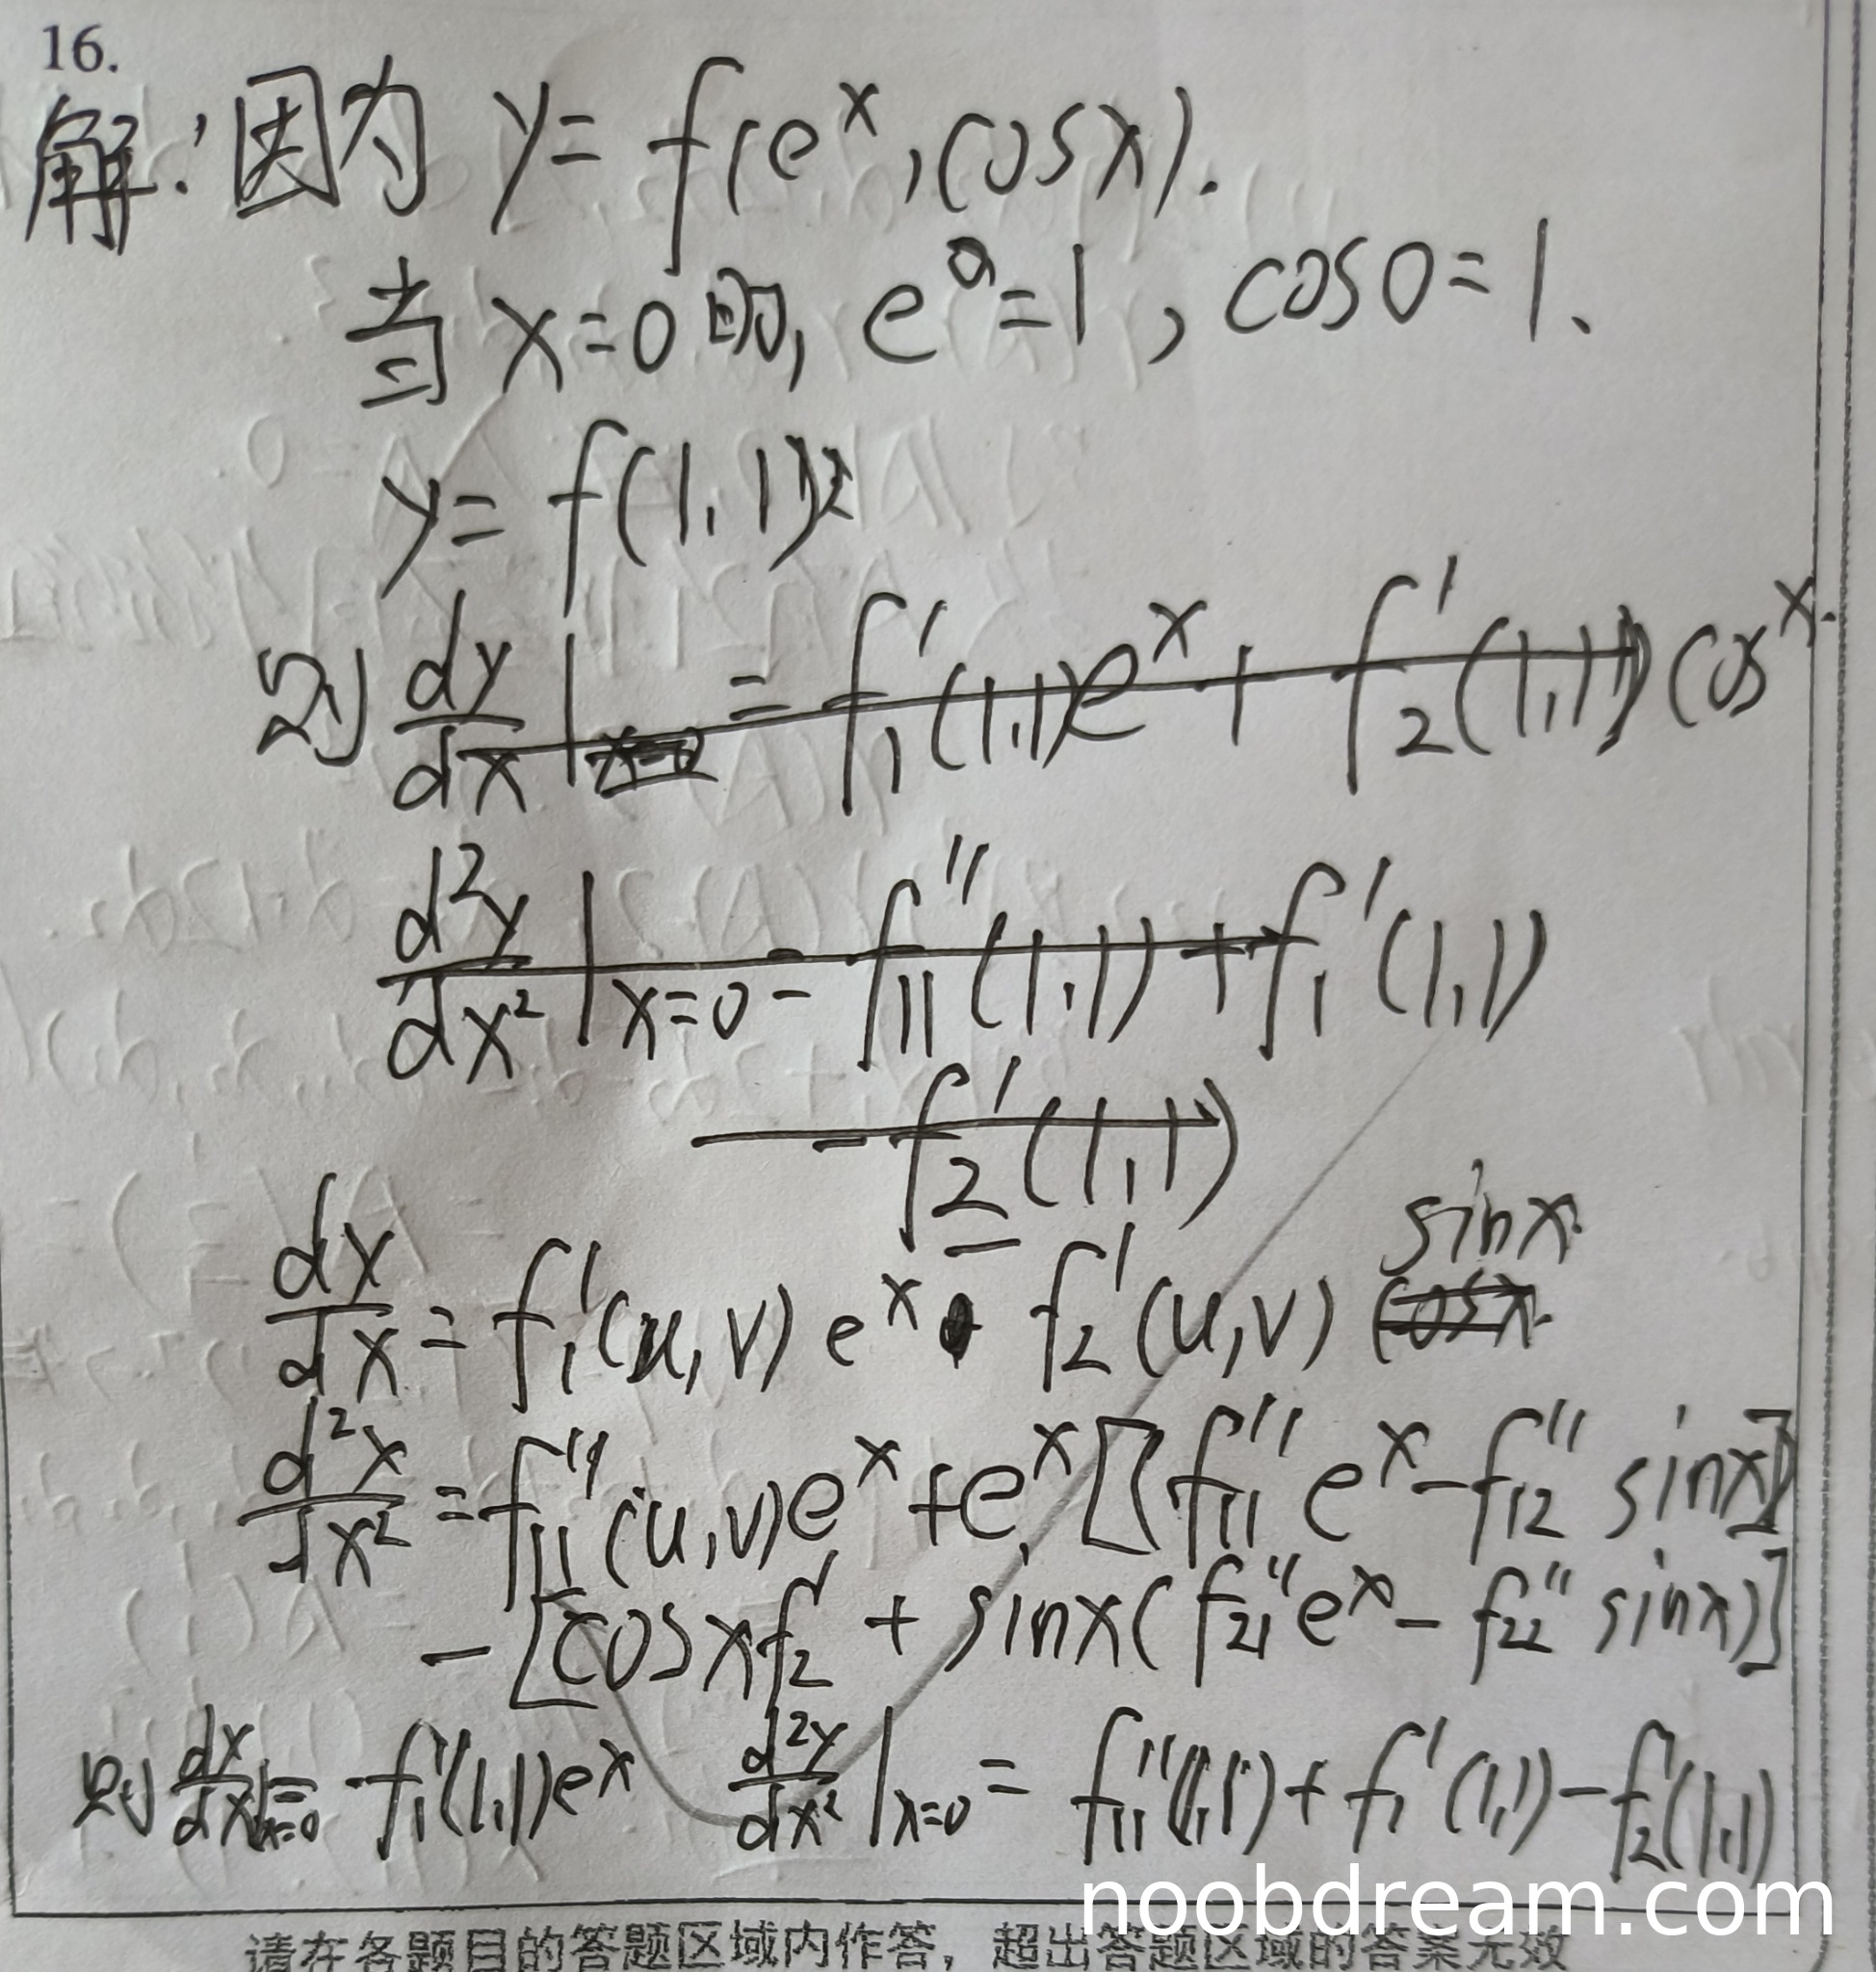 16.
解:因为 y = f(e^x, cosx).
当 x=0时, e^0=1, cos0=1.
y = f(1,1)
则 dy/dx | = f₁'(1,1)e^x + f₂'(1,1) cos^x.
d²y/dx² |x=0 = f₁₁''(1,1) + f₁'(1,1)
- f₂'(1,1)
sinx.
dy/dx = f₁'(u,v) e^x f₂'(u,v) cosx.
d²x/dx² = f₁₁''(u,v)e^x + e^x[f₁₁''e^x - f₁₂'' sinx]
- [cosxf₂' + sinx(f₂₁''e^x - f₂₂'' sinx)]
则 dy/dx|x=0 = f₁'(1,1)e^x d²y/dx²|x=0 = f₁₁''(1,1) + f₁'(1,1) - f₂'(1,1)
noobdream.com
请在各题目的答题区域内作答，超出答题区域的答案无效